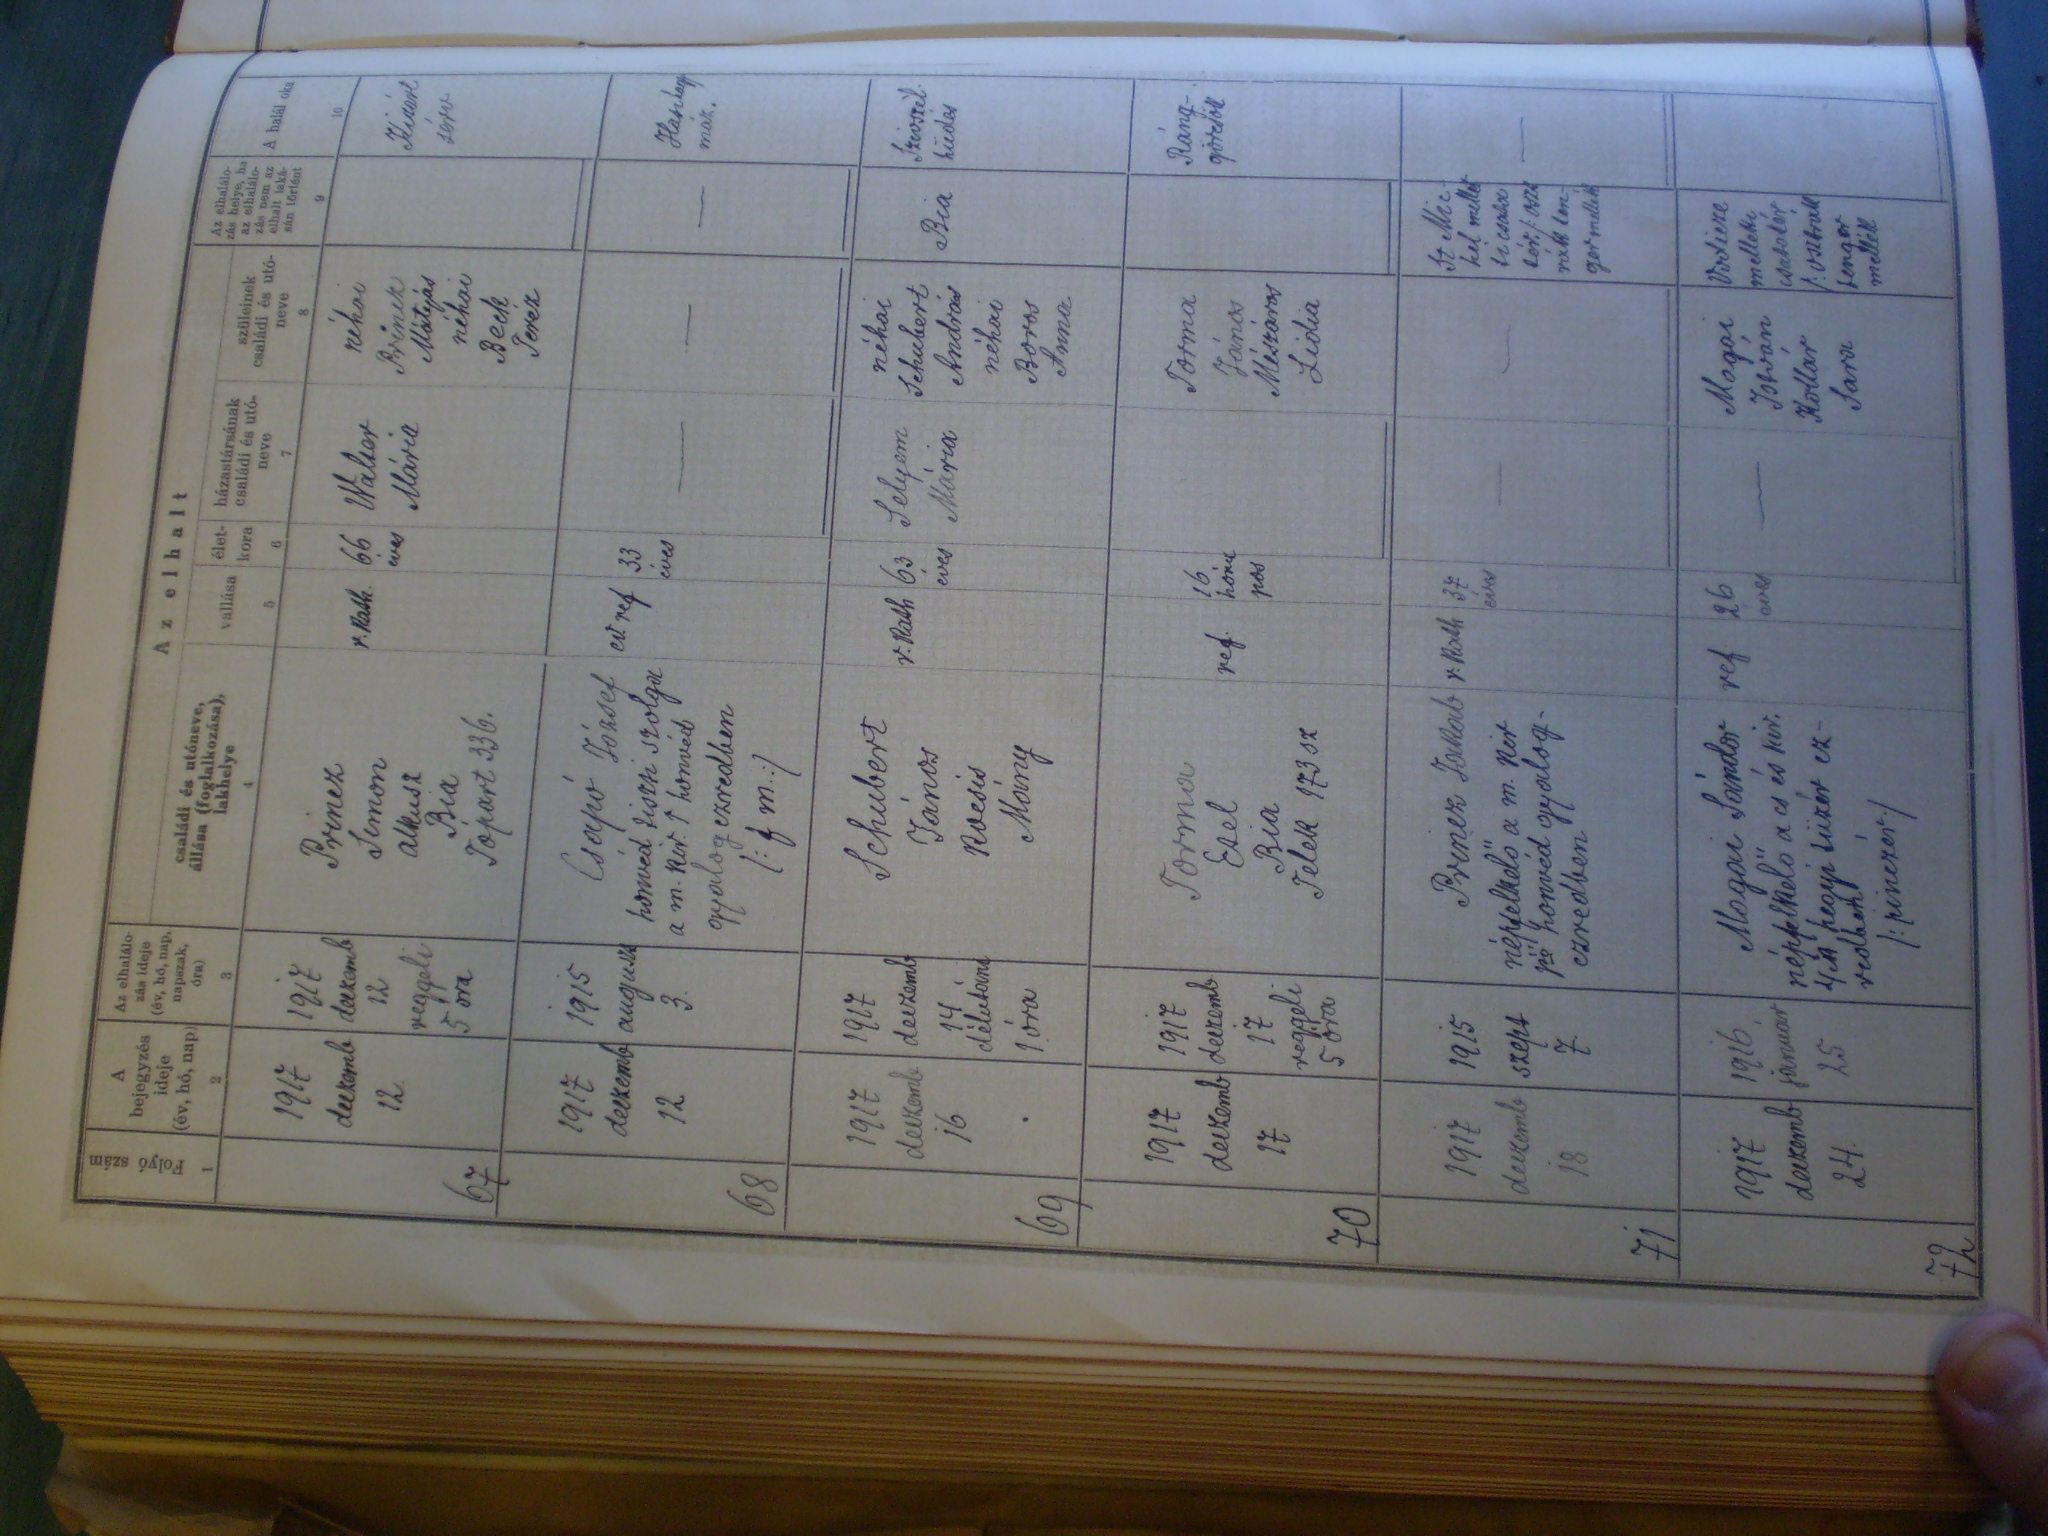 Az elhalt
Folyó-szám
A bejegyzés ideje (év, hó, nap)
Az elhalálo-
zás ideje
(év, hó, nap,
napszak,
óra)
családi és utóneve,
állása (foglalkozása),
lakhelye
vallása
élet-
kora
házastársának
családi és utó-
neve
szüleinek
családi és utó-
neve
Az elhalálo-
zás helye, ha
az elhalálo-
zás nem az
elhalt laká-
sán történt
A halál oka
1 2 3 4 5 6 7 8 9 10
67
1917
deczemb
12.
1917
deczemb
12
reggeli
5 óra
Princz
Simon
alkusz
Bia
Tópart 336.
r. kath.
66
éves
Walser
Mária
néhai
Princz
Mátyás
néhai
Beck
Terez
68
1917
deczemb
12
1915
augusz
3.
Csapó József
honvéd tiszti szolga
a m. kir. 1 honvéd
gyalog ezredben
ev. ref
33
éves
—
—
—
69
1917
deczemb
16
1917
deczemb
14
délutáni
1 óra
Schubert
János
kocsis
Mány
r. kath
63
éves
Selyem
Mária
néhai
Schubert
András
néhai
Boros
Anna
Bia
Szivszél-
hüdés
70
1917
deczemb
17
1917
deczemb
17
reggeli
5 óra
Torma
Etel
Bia
Telek 173 sz
ref.
16
hóna
pos
Torma
János
Mészáros
Lidia
Ráng-
görcsök
71
1917
deczemb
18
1915
szept
7
Princz Jakab
népfelkelő a m. kir
honvéd gyalog-
ezredben
r. kath
37
éves
—
—
Sz Mic-
hel mellet
—
72
1917
deczemb
24.
1916
január
25
Magai Sándor
népfelkelő a cs és kir.
hegyi tüzér ez-
redben
/: pinczér :/
ref
26
éves
—
Magai
István
Kollár
Sara
melleti
tenger
mellék